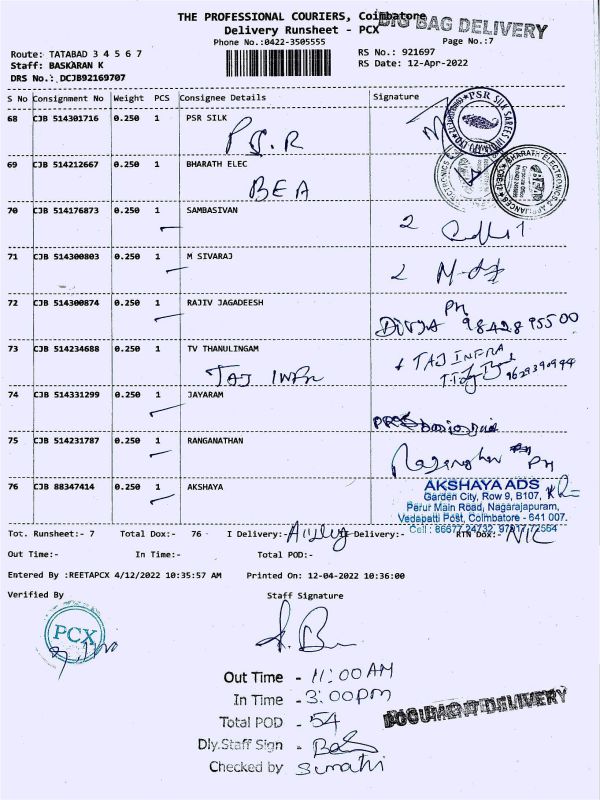 THE PROFESSIONAL COURIERS, Coimbatore
BIG BAG DELIVERY
Delivery Runsheet - PCX
Phone No.:0422-3505555
Page No.:7
Route: TATABAD 3 4 5 6 7
RS No.: 921697
Staff: BASKARAN K
RS Date: 12-Apr-2022
DRS No.: DCJB92169707
S No Consignment No Weight PCS Consignee Details Signature
68 CJB 514301716 0.250 1 PSR SILK
P.S.R
69 CJB 514212667 0.250 1 BHARATH ELEC
BEA
70 CJB 514176873 0.250 1 SAMBASIVAN
71 CJB 514300803 0.250 1 M SIVARAJ
72 CJB 514300874 0.250 1 RAJIV JAGADEESH
DIVYA 9842895500
73 CJB 514234688 0.250 1 TV THANULINGAM
TAJ INFRA
TAJ INFRA
9629390994
74 CJB 514331299 0.250 1 JAYARAM
75 CJB 514231787 0.250 1 RANGANATHAN
76 CJB 88347414 0.250 1 AKSHAYA
AKSHAYA ADS
Garden City, Row 9, B107,
Perur Main Road, Nagarajapuram,
Vedapatti Post, Coimbatore - 641 007.
Cell : 86677 24732,
Tot. Runsheet:- 7 Total Dox:- 76 I Delivery:- Delivery:- RTN Dox:- NIL
Out Time:- In Time:- Total POD:-
Entered By :REETAPCX 4/12/2022 10:35:57 AM Printed On: 12-04-2022 10:36:00
Verified By Staff Signature
PCX
Out Time - 11:00 AM
In Time - 3:00pm
Total POD - 54
DOCUMENT DELIVERY
Dly.Staff Sign -
Checked by Sumathi